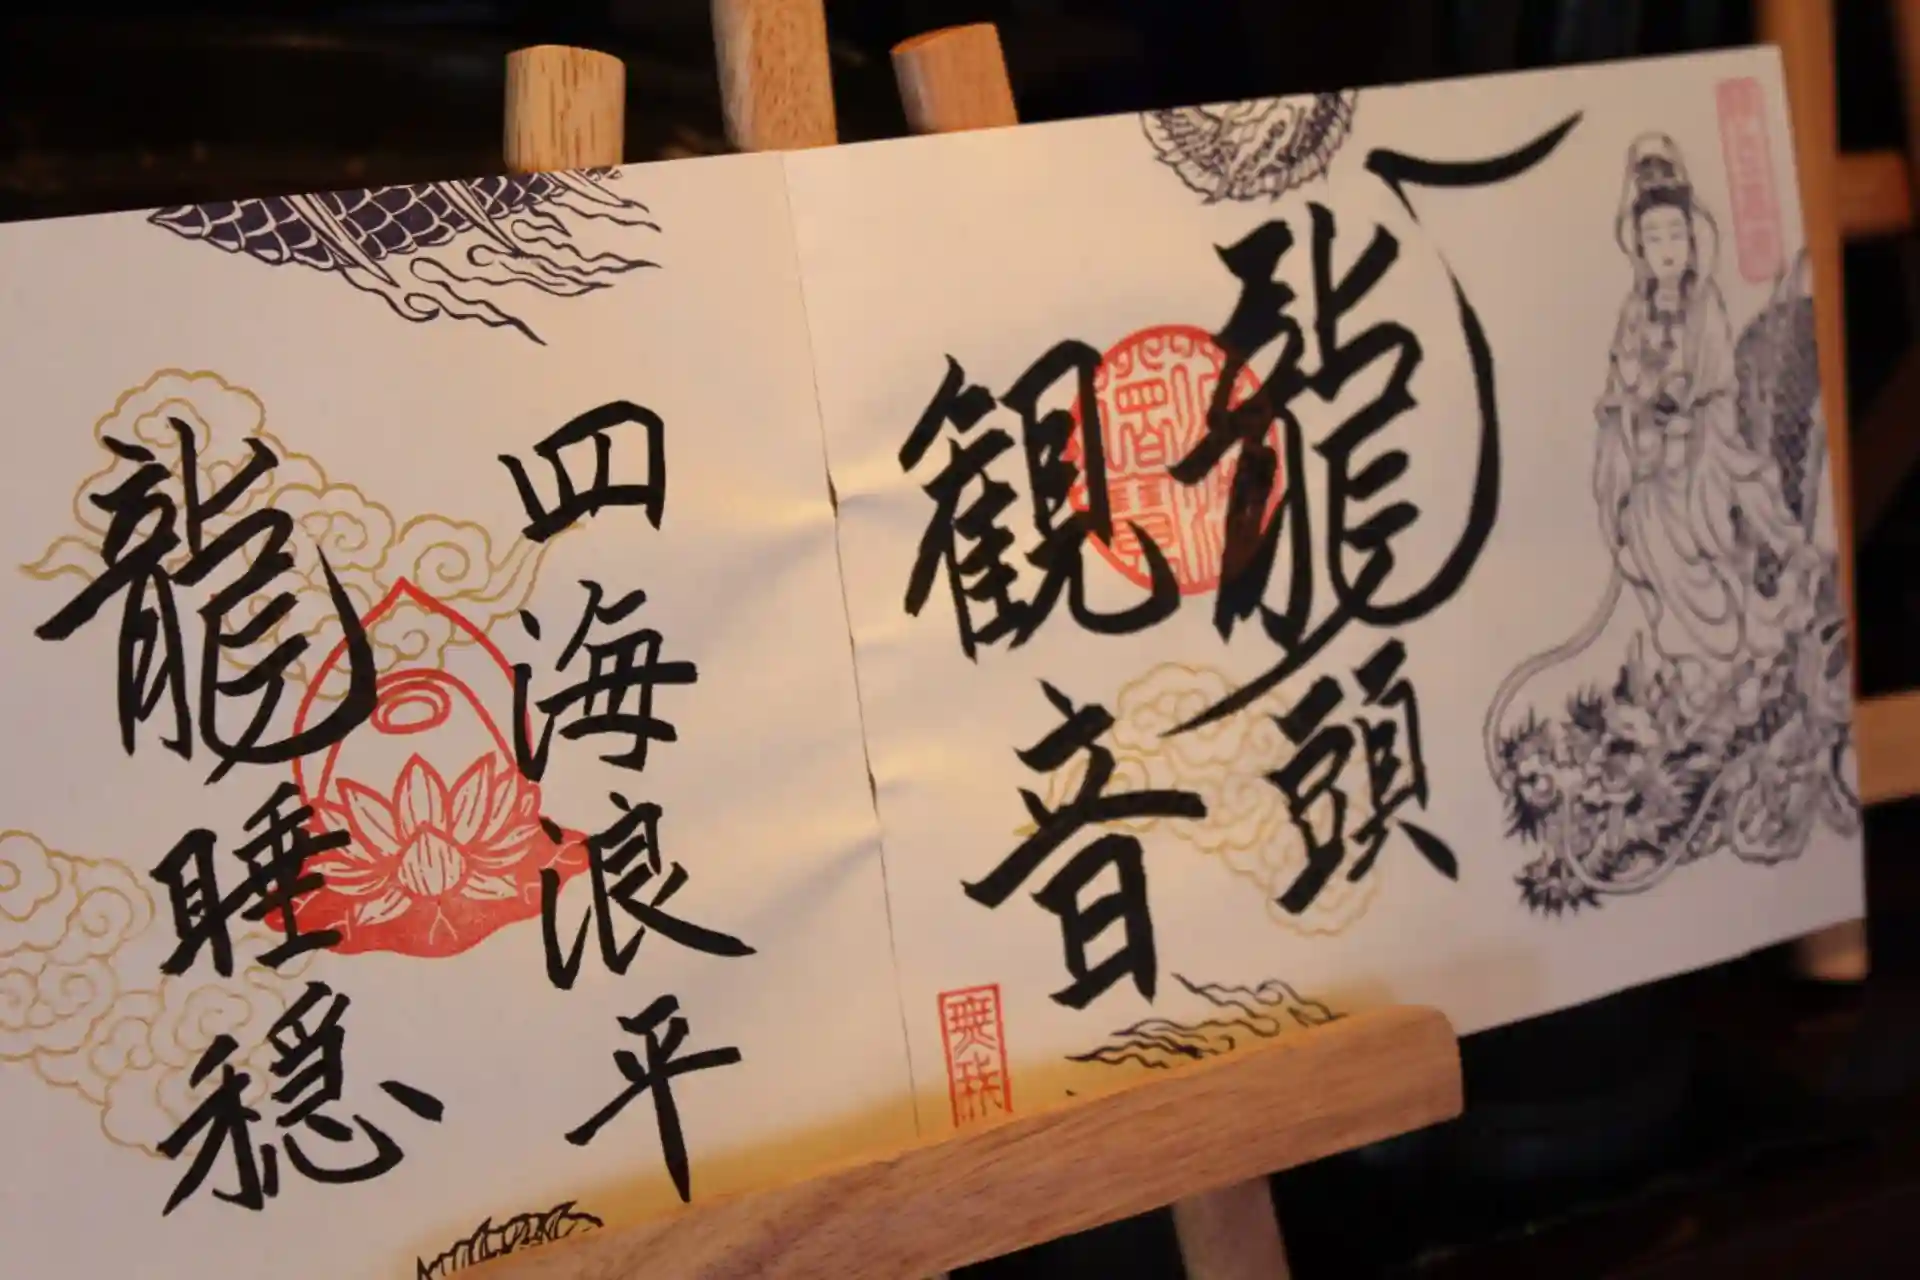 龍頭
観音
四海浪平
龍睡穏